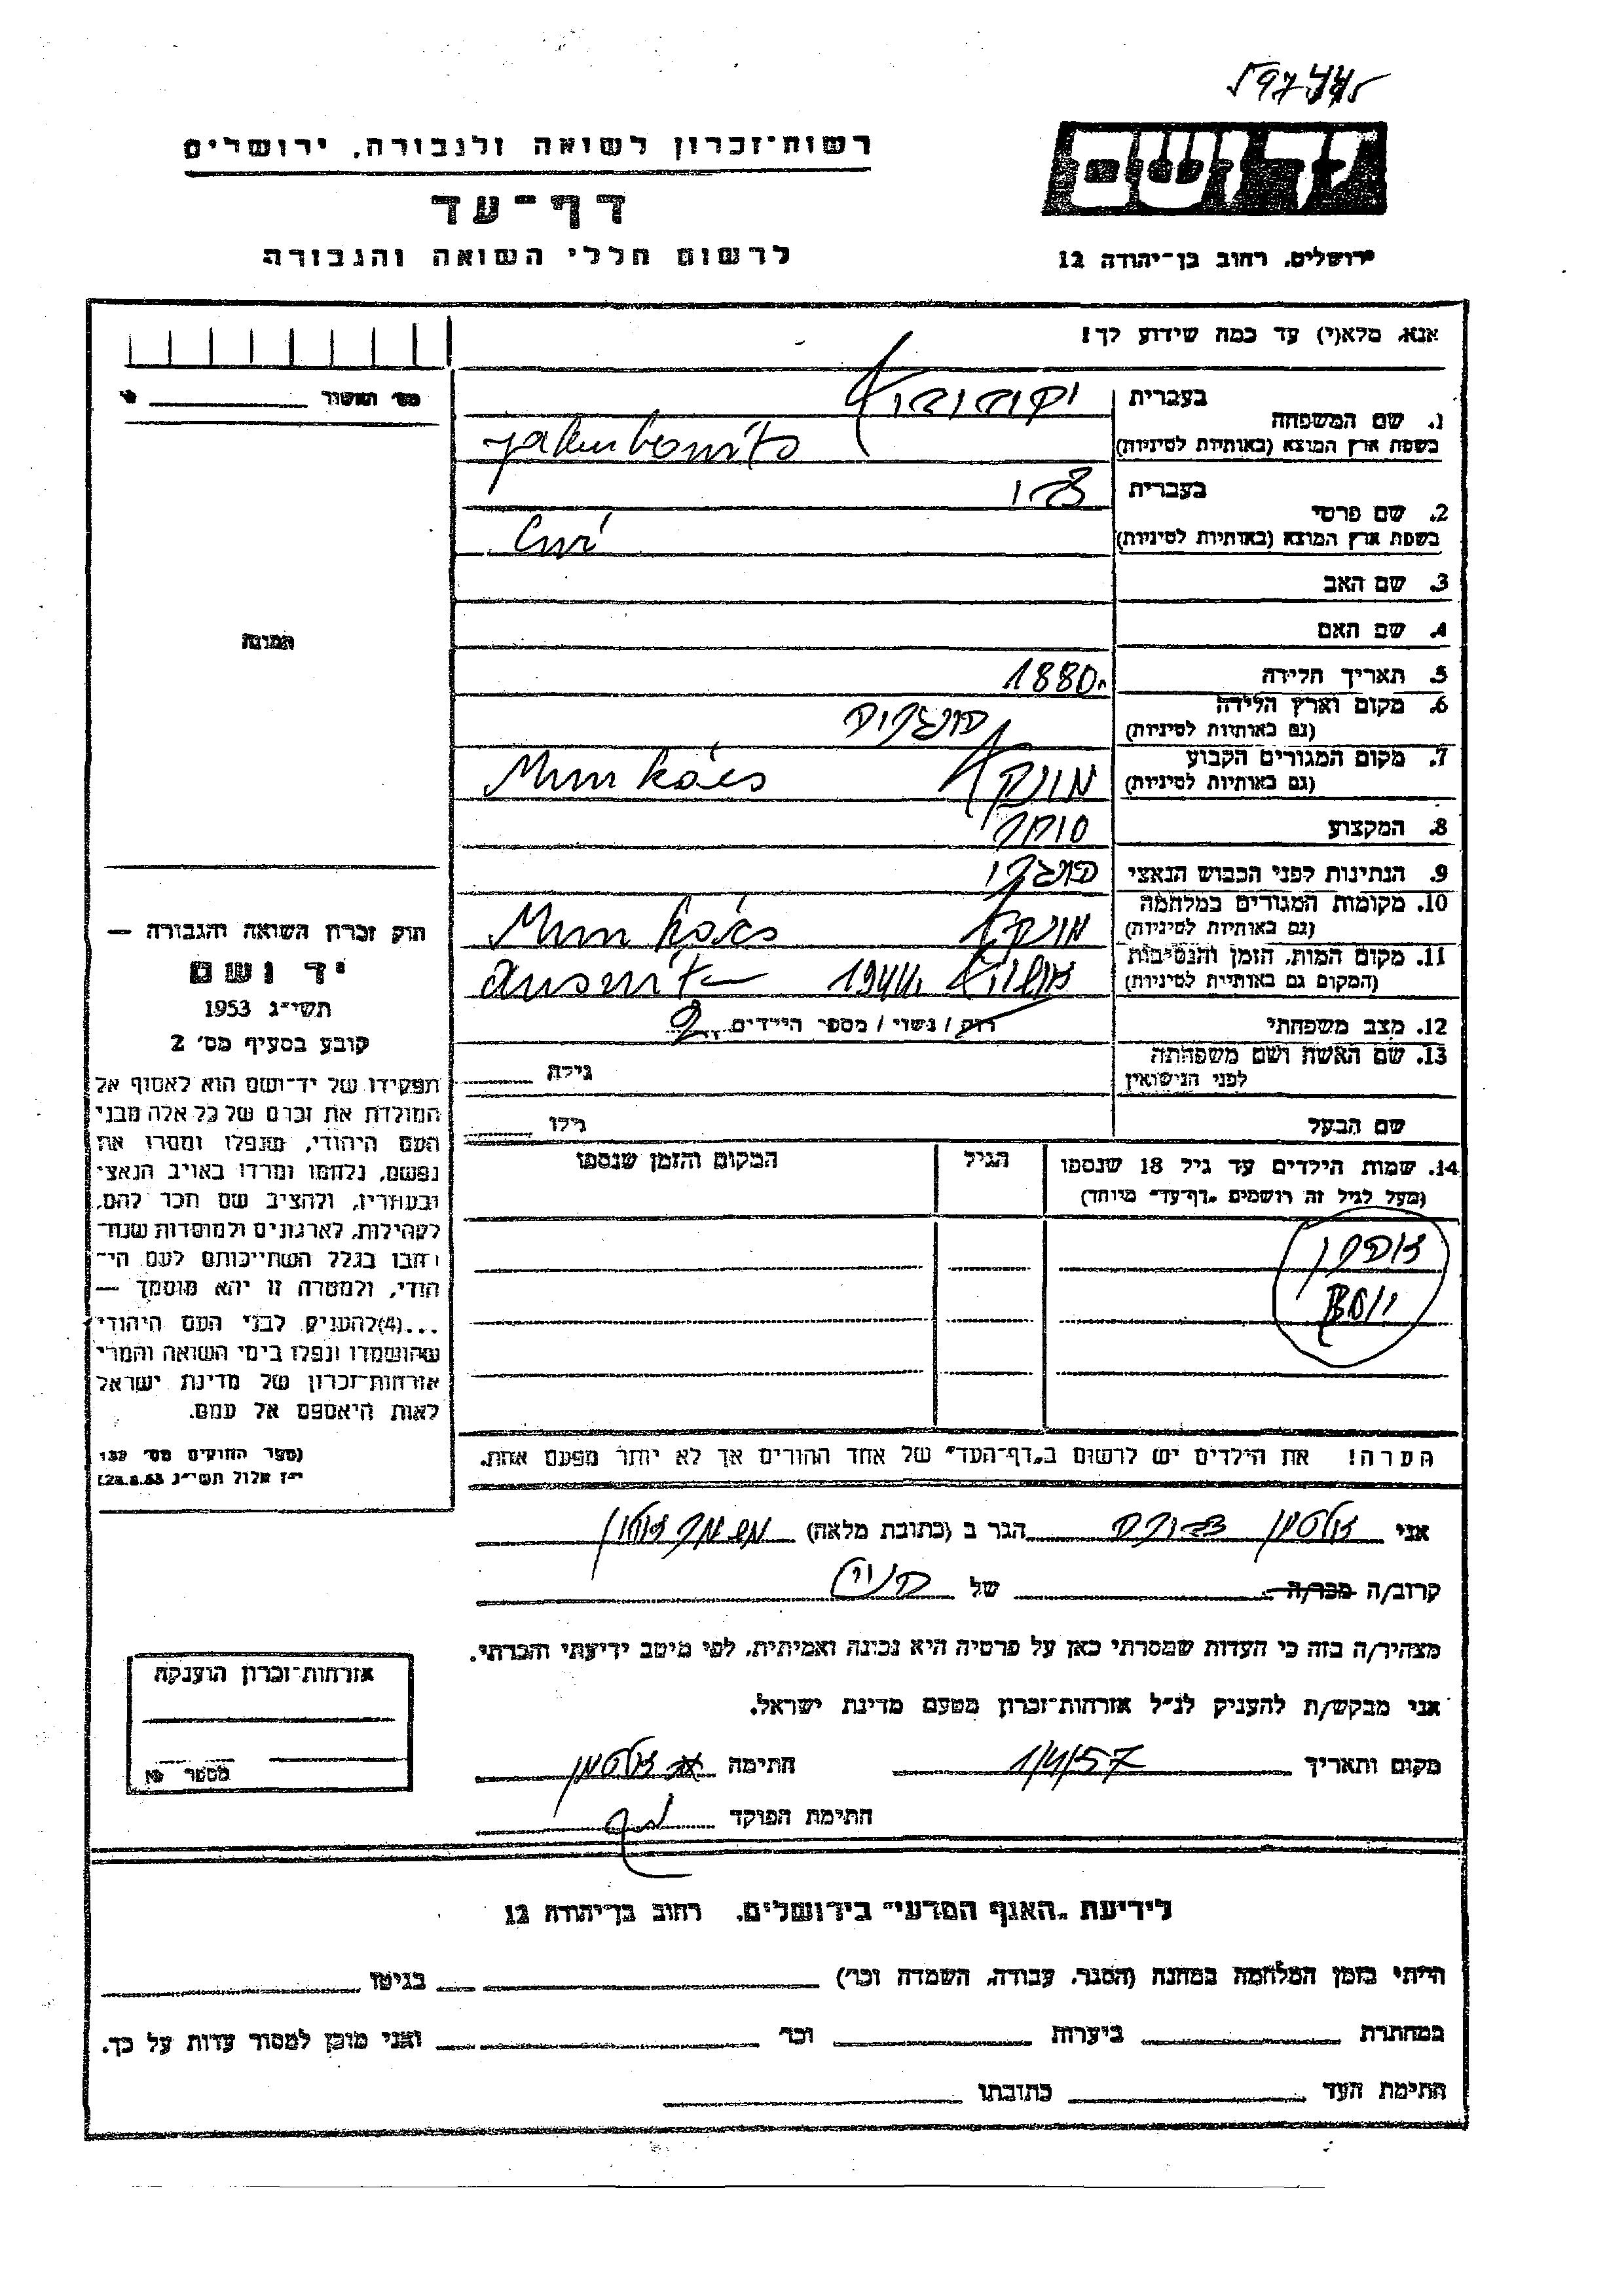 597445
רשות־זכרון לשואה ולגבורה, ירושלים
דף־עד
לרשום חללי השואה והגבורה
יד ושם
ירושלים, רחוב בן־יהודה 12
אנא, מלא(י) עד כמה שידוע לך!
מס׳ האשור
1. שם המשפחה
בעברית
בשפת ארץ המוצא (באותיות לטיניות)
Jakubovits
2. שם פרטי
בעברית
בשפת ארץ המוצא (באותיות לטיניות)
3. שם האב
4. שם האם
5. תאריך הלידה 1880
6. מקום וארץ הלידה
(גם באותיות לטיניות)
7. מקום המגורים הקבוע
(גם באותיות לטיניות)
מונקץ Munkács
8. המקצוע סוחר
9. הנתינות לפני הכבוש הנאצי
10. מקומות המגורים במלחמה
(גם באותיות לטיניות)
מונקץ Munkács
11. מקום המות, הזמן והנסיבות
(המקום גם באותיות לטיניות)
אושויץ 1944 Auswitz
12. מצב משפחתי
רוק / נשוי / מספר הילדים 2
13. שם האשה ושם משפחתה
לפני הנישואין
גילה
שם הבעל
גילו
14. שמות הילדים עד גיל 18 שנספו
(מעל לגיל זה רושמים „דף־עד״ מיוחד)
הגיל
המקום והזמן שנספו
התמונה
חוק זכרון השואה והגבורה —
יד ושם
תשי״ג 1953
קובע בסעיף מס׳ 2
תפקידו של יד־ושם הוא לאסוף אל
המולדת את זכרם של כל אלה מבני
העם היהודי, שנפלו ומסרו את
נפשם, נלחמו ומרדו באויב הנאצי
ובעוזריו, ולהציב שם וזכר להם,
לקהילות, לארגונים ולמוסדות שנח־
רבו בגלל השתייכותם לעם הי־
הודי, ולמטרה זו יהא מוסמך —
...(4)להעניק לבני העם היהודי
שהושמדו ונפלו בימי השואה והמרי
אזרחות־זכרון של מדינת ישראל
לאות היאספם אל עמם.
(ספר החוקים מס׳ 132
י״ז אלול תשי״ג 28.8.53)
הערה! את הילדים יש לרשום ב„דף־העד״ של אחד ההורים אך לא יותר מפעם אחת.
אני זלטמן הגר ב (כתובת מלאה)
קרוב/ה מכר/ה של
מצהיר/ה בזה כי העדות שמסרתי כאן על פרטיה היא נכונה ואמיתית, לפי מיטב ידיעתי והכרתי.
אני מבקש/ת להעניק לנ״ל אזרחות־זכרון מטעם מדינת ישראל.
מקום ותאריך 1/4/57 חתימה זלטמן
חתימת הפוקד
אזרחות־זכרון הוענקה
מספר
לידיעת „האגף המדעי״ בירושלים, רחוב בן־יהודה 12
הייתי בזמן המלחמה במחנה (הסגר, עבודה, השמדה וכר׳) בגיטו
במחתרת ביערות וכר׳ ואני מוכן למסור עדות על כך.
חתימת העד כתובתו